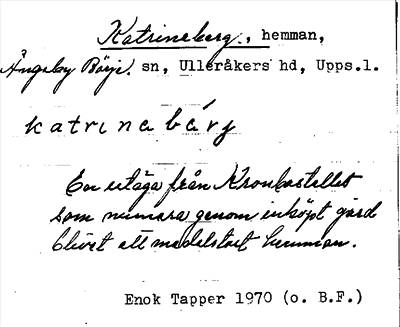 Katrineberg, hemman,
Ängeby Börje sn, Ulleråkers hd, Upps.l.
katrinebärj
En utäga från Kronbostället
som numera genom inköpt jord
blivit ett medelstort hemman.
Enok Tapper 1970 (o. B.F.)